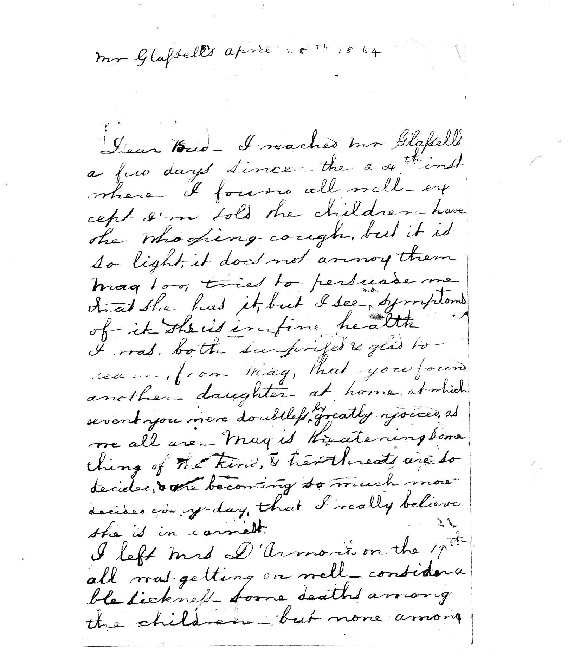 Mr Glassell's April 28th 1864
Dear Bud - I reached Mr Glassells
a few days since - the 24th inst
where I found all well - ex
cept I'm told the children have
the Whooping-cough, but it is
so light, it does not annoy them
Mag too, tries to persuade me
that she has it, but I see no symptoms
of - it She is in fine health
I was both surprised & glad to
learn, from Mag, that you found
another daughter at home, at which
event you were doubtless, greatly rejoiced, as
we all are - Mag is threatening some
thing of the kind, & her threats are so
decided, & are becoming so much more
decided every-day, that I really believe
she is in earnest
I left Mrs D'Armond's on the 19th
all was getting on well - considera
ble sickness - some deaths among
the children - but none among